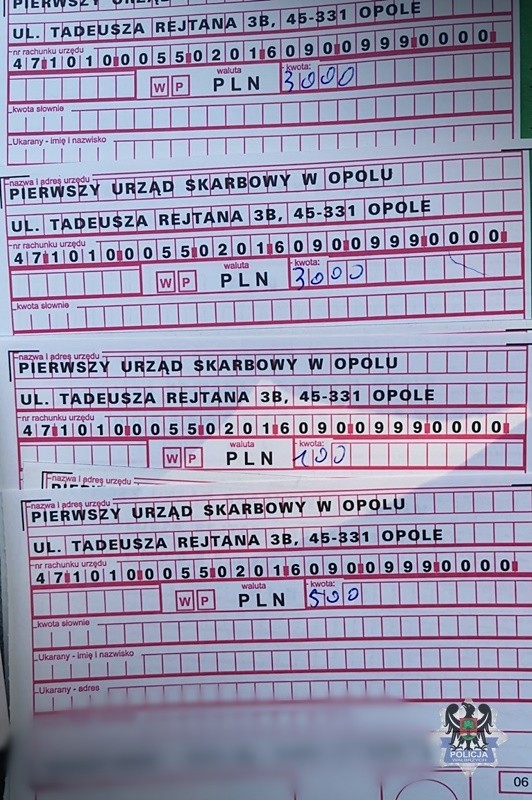 PIERWSZY URZĄD
UL. TADEUSZA REJTANA 3B, 45-331 OPOLE
nr rachunku urzędu
47 1010 0055 0201 6090 0999 0000
waluta kwota:
W P PLN 3000
kwota słownie
Ukarany - imię i nazwisko
nazwa i adres urzędu
PIERWSZY URZĄD SKARBOWY W OPOLU
UL. TADEUSZA REJTANA 3B, 45-331 OPOLE
nr rachunku urzędu
47 1010 0055 0201 6090 0999 0000
waluta kwota:
W P PLN 3000
kwota słownie
nazwa i adres urzędu
PIERWSZY URZĄD SKARBOWY W OPOLU
UL. TADEUSZA REJTANA 3B, 45-331 OPOLE
nr rachunku urzędu
47 1010 0055 0201 6090 0999 0000
waluta kwota:
W P PLN 100
nazwa i adres urzędu
nazwa i adres urzędu
PIERWSZY URZĄD SKARBOWY W OPOLU
UL. TADEUSZA REJTANA 3B, 45-331 OPOLE
nr rachunku urzędu
47 1010 0055 0201 6090 0999 0000
waluta kwota:
W P PLN 500
kwota słownie
Ukarany - imię i nazwisko
Ukarany - adres
POLICJA
WAŁBRZYCH
06